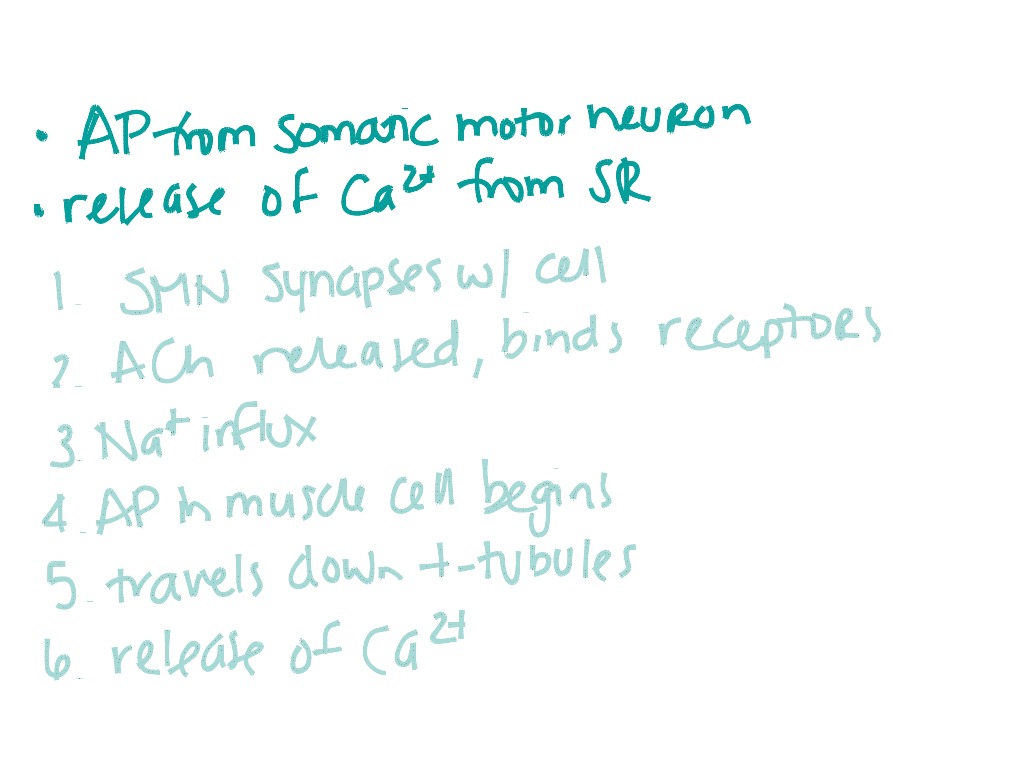 • AP from somatic motor neuron
• release of Ca²⁺ from SR
1. SMN synapses w/ cell
2. ACh released, binds receptors
3. Na⁺ influx
4. AP in muscle cell begins
5. travels down t-tubules
6. release of Ca²⁺